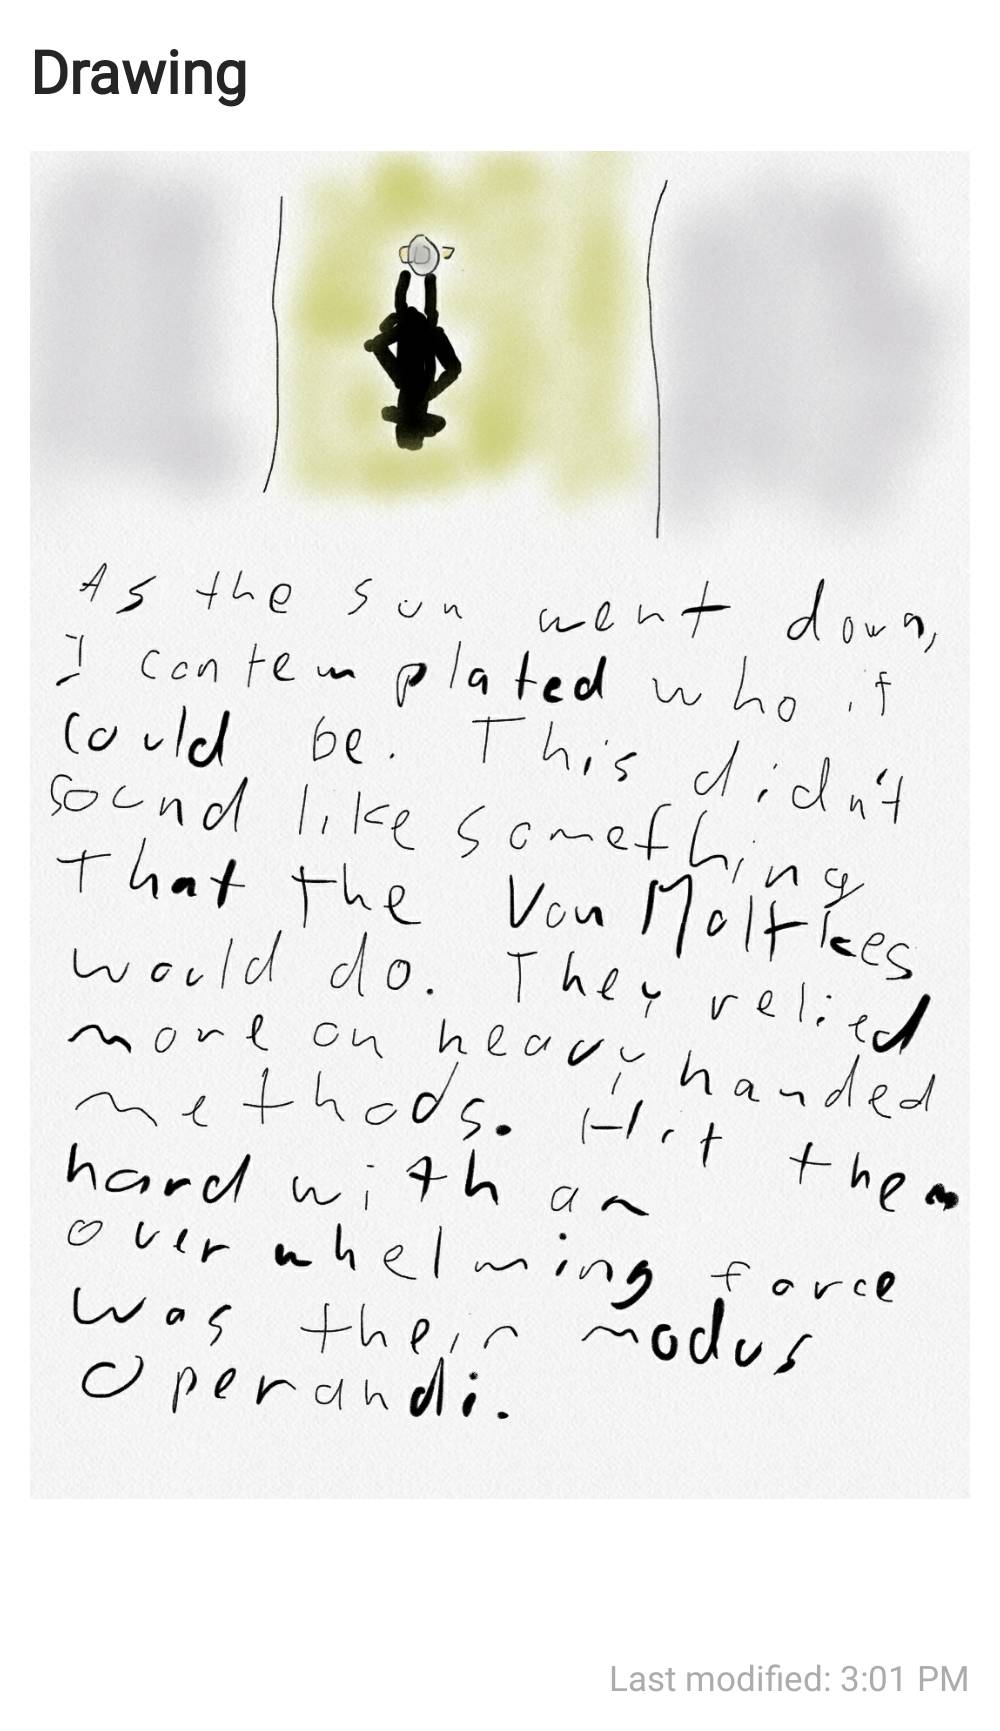 Drawing
As the sun went down,
I contemplated who it
could be. This didn't
sound like something
that the Von Moltkes
would do. They relied
more on heavy handed
methods. Hit them
hard with an
overwhelming force
was their modus
operandi.
Last modified: 3:01 PM